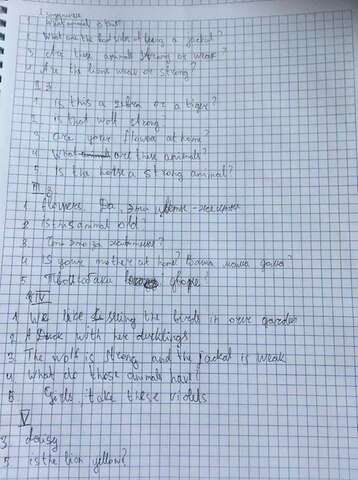 What animal is this
2 What are the bad sides of being a jackal?
3 Are these animals strong or weak?
4 Are the lions weak or strong?
II
1 is this a zebra or a tiger?
2 is that wolf strong
3 are your flower at home?
4 What are these animals?
5 Is the horse a strong animal?
III
1 flowers, Да, эти цветы - желтые
2 Is this animal old?
3 Что это за животные?
4 is your mother at home? Ваша мама дома?
5 Твои собаки дворе?
IV
1 We like seeing the birds in our garden
2 A Duck with her ducklings
3 The wolf is strong and the jackal is weak
4 What do those animals have?
5 Girls, take these violets
V
3 daisy
5 is the lion yellow?